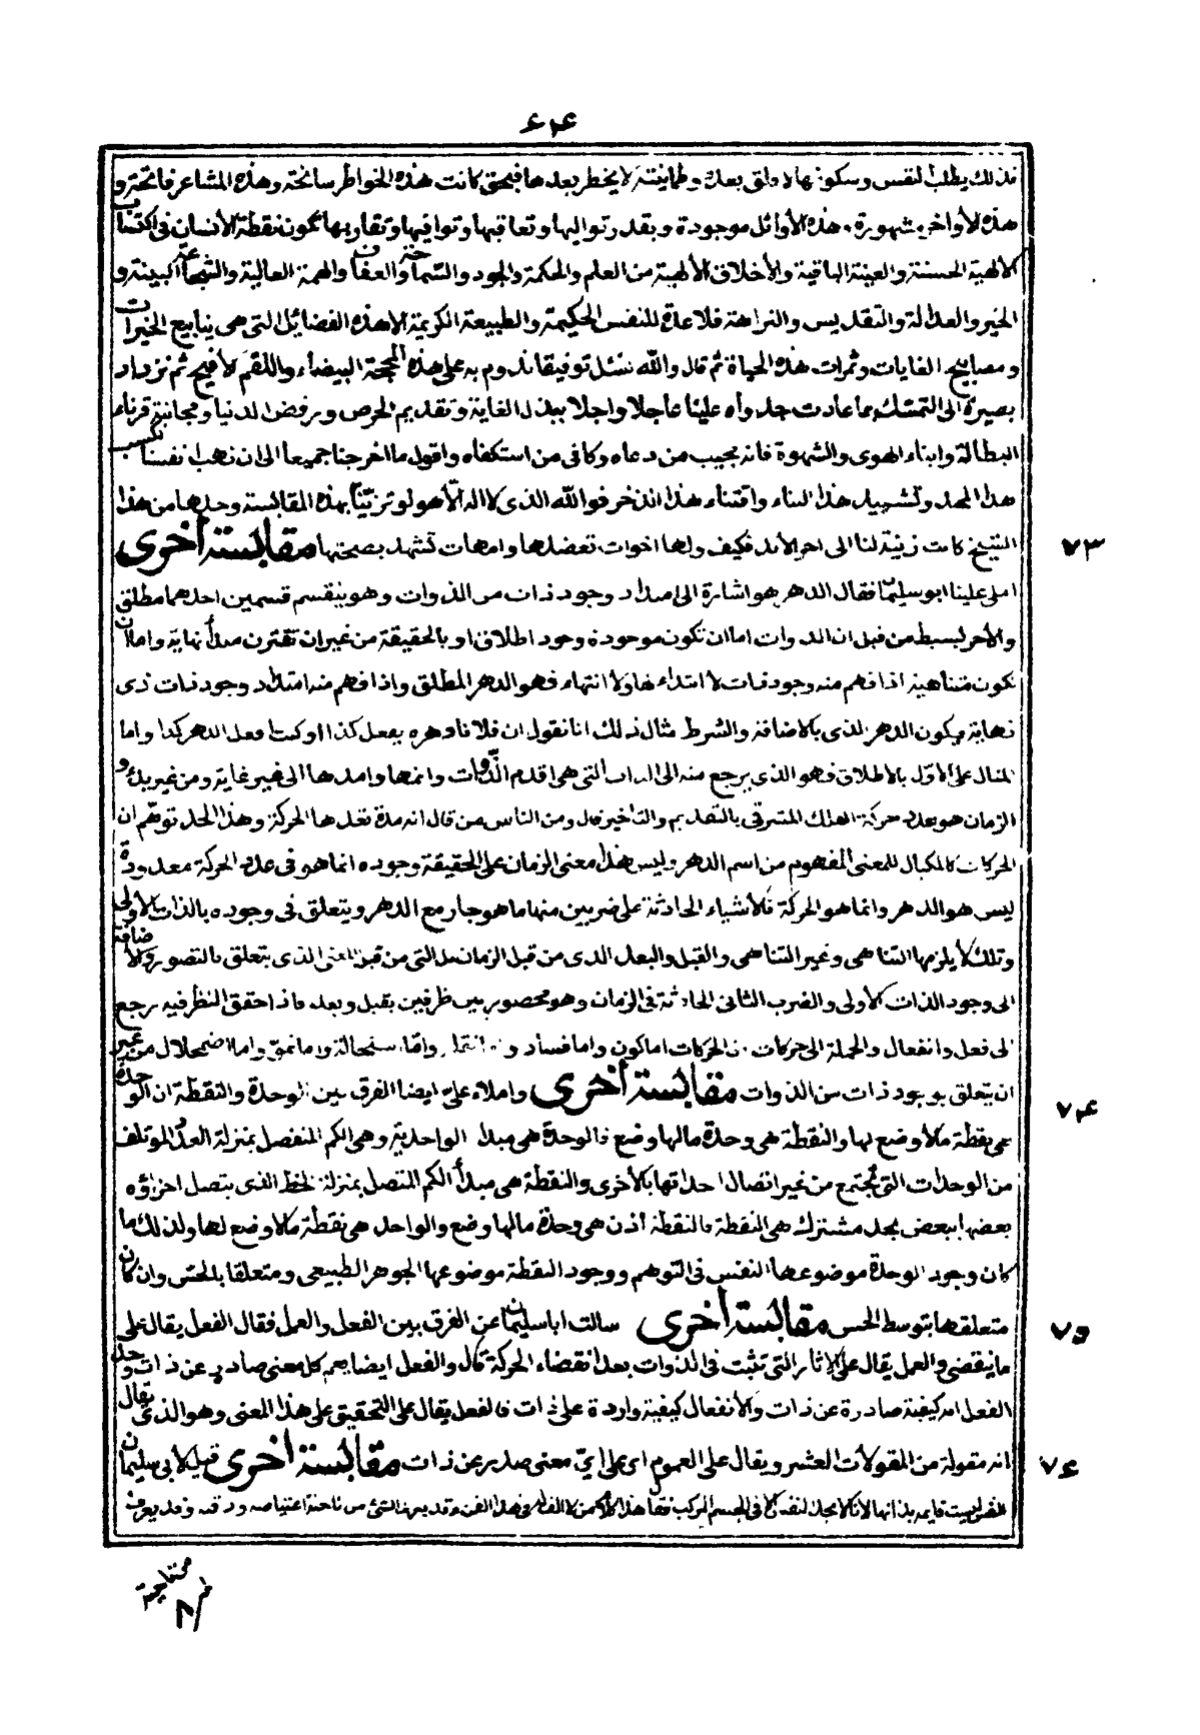 ٦٤
فذلك يطلب النفس وسكونها لا قلق بعده وطمانينته لا يخطر بعدها فبحق كانت هذه الخواطر سانحة وهذه المشاعر فاتحة و
هذه الأواخر مشهورة، هذه الأوائل موجودة وبقدر تواليها وتعاقبها وتوافيها وتقاربها تكون نقطة الأنسان في اكتساب
الالهية الحسنة والعيشة الباقية والأخلاق الألهية من العلم والحكمة والجود والسماحة والعفاف والهمة العالية والشجاعة البينة و
الخير والعدالة والتقديس والنزاهة فلا عادة للنفس الحكيمة والطبيعة الكريمة الا هذه الفضائل التي هي ينابيع الخيرات
ومصابيح الغايات وثمرات هذه الحياة ثم قال والله نسئل توفيقا ندوم به على هذه المحجة البيضاء واللقم الأفيح ثم نزداد
بصيرة الى التمسك بما عادت جدواه علينا عاجلا واجلا ببذل الغاية وتقديم الحرص ورفض الدنيا ومجانبة قرناء
البطالة وابناء الهوى والشهوة فانه مجيب من دعاه وكافى من استكفاه واقول ما اخرجنا جميعا الى ان نهب انفسنا لكسب
هذا المجد وتشييد هذا البناء واقتناء هذا الذخر فوالله الذى لا اله الا هو لو تزيّنا بهذه المقابسة وحدها من هذا
الشيخ كانت زينة لنا الى اخر الأبد فكيف ولها اخوات تعضدها وامهات تشهد بصحتها مقابسة أخرى
٧٣
املى علينا ابو سليمان فقال الدهر هو اشارة الى امتداد وجود ذات من الذوات وهو ينقسم قسمين احدهما مطلق
والأخر بسيط من قبل ان الذوات اما ان تكون موجودة وجود اطلاق او بالحقيقة من غير ان تقترن مبدأ نهاية واما ان
تكون متناهية اذا فهم منه وجود ذات لا ابتداء لها ولا انتهاء فهو الدهر المطلق واذا فهم منه امتداد وجود ذات ذى
نهاية فيكون الدهر الذى بالاضافة والشرط مثال ذلك انا نقول ان فلانا دهره يفعل كذا او كنت افعل الدهر كذا واما
المثال على الاوّل بالاطلاق فهو الذى يرجع منه الى الذات التى هى اقدم الذّوات وانها وامدها الى غير غاية ومن غير بدء و
الزمان هو عدد حركة الفلك المشرقى بالتقديم والتاخير قال ومن الناس من قال انه مدة تعدها الحركة وهذا الحد توهّم ان
الحركات كالمكيال للمعنى المفهوم من اسم الدهر وليس هذا معنى الزمان على الحقيقة وجوده انما هو فى عدد الحركة معدودة
ليس هو الدهر وانما هو الحركة فالأشياء الحادثة على ضربين منها ما هو جار مع الدهر ويتعلق فى وجوده بالذات الأولى
وتلك لا يلزمها التناهى وغير التناهى والقبل والبعد الذى من قبل الزمان بل التى من قبل المعنى الذى يتعلق بالتصور والاضافة
الى وجود الذات الأولى والضرب الثانى الحادثة فى الزمان وهو محصور بين ظرفين بقبل وبعد فاذا حقق النظر فيه رجع
الى فعل وانفعال والجملة الى حركات الحركات اما كون واما فساد واما استحالة واما نمو واما اضمحلال من غير
ان يتعلق بوجود ذات من الذوات مقابسة أخرى واملاء علىّ ايضا الفرق بين الوحدة والنقطة ان الوحدة
٧٤
هى نقطة ما لا وضع لها والنقطة هى وحدة ما لها وضع فالوحدة هى مبدأ الواحدية وهى الكم المنفصل بمنزلة العدد المؤتلف
من الوحدات التى تجتمع من غير اتصال احداتها بالأخرى والنقطة هى مبدأ الكم المتصل بمنزلة الخط الذى يتصل اجزاؤه
بعضها ببعض بحد مشترك هى النقطة فالنقطة اذن هى وحدة ما لها وضع والواحد هى نقطة ما لا وضع لها ولذلك ما
كان وجود الوحدة موضوعها النفس فى التوهم ووجود النقطة موضوعها الجوهر الطبيعى ومتعلقا بالحس وان كان
متعلقها بتوسط الحس مقابسة أخرى سالت ابا سليمان عن الفرق بين الفعل والعمل فقال الفعل يقال على
٧٥
ما ينقضى والعمل يقال على الاثار التى تثبت فى الذوات بعد انقضاء الحركة قال والفعل ايضا يعم كل معنى صادر عن ذات وحد
الفعل انه كيفية صادرة عن ذات والأنفعال كيفية واردة على ذات فالفعل يقال على التحقيق على هذا المعنى وهو الذى يقال
انه مقولة من المقولات العشر ويقال على العموم اى على اىّ معنى صدر عن ذات مقابسة أخرى قيل لأبى سليمان
٧٦
النفس ليست قايمه بذاتها لانا لا نجد النفس الا فى الجسم المركب فقد يعرف